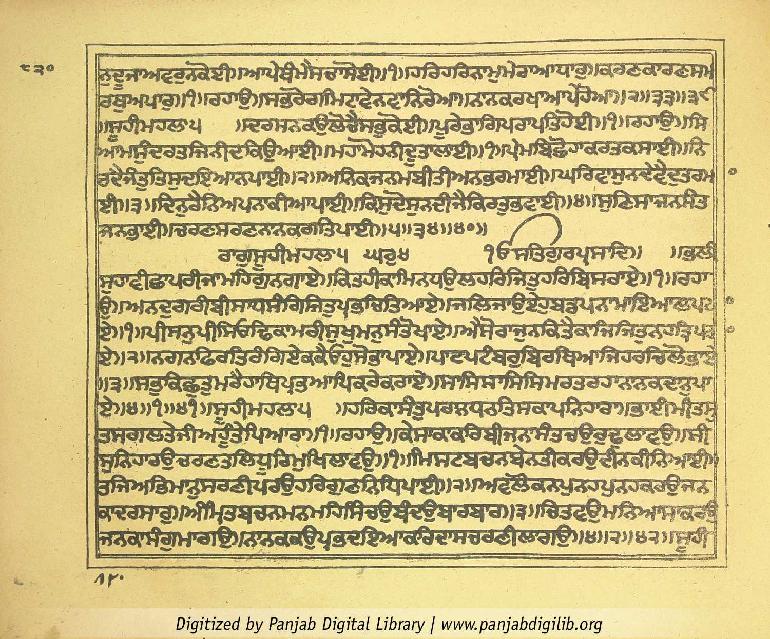 ੮੨੦
ਨਦੂਜਾਅਵਰੁਨਕੋਈ॥ਆਪੇਥੰਮੈਸਚਾਸੋਈ॥੧॥ਹਰਿਹਰਿਨਾਮੁਮੇਰਾਆਧਾਰੁ॥ਕਰਣਕਾਰਣਸਮ
ਰਥੁਅਪਾਰੁ॥੧॥ਰਹਾਉ॥ਸਭਰੋਗਮਿਟਾਵੇਨਵਾਨਿਰੋਆ॥ਨਾਨਕਰਖਾਆਪੇਹੋਆ॥੨॥੩੩॥੩੯
॥ਸੂਹੀਮਹਲਾ੫ ॥ਦਰਸਨਕਉਲੋਚੈਸਭੁਕੋਈ॥ਪੂਰੈਭਾਗਿਪਰਾਪਤਿਹੋਈ॥੧॥ਰਹਾਉ॥ਸਿ
ਆਮਸੁੰਦਰਤਜਿਨੀਦਕਿਉਆਈ॥ਮਹਾਮੋਹਨੀਦੂਤਾਲਾਈ॥੧॥ਪ੍ਰੇਮਬਿਛੋਹਾਕਰਤਕਸਾਈ॥ਨਿ
ਰਦੈਜੰਤੁਤਿਸੁਦਇਆਨਪਾਈ॥੨॥ਅਨਿਕਜਨਮਬੀਤੀਅਨਭਰਮਾਈ॥ਘਰਿਵਾਸੁਨਦੇਵੈਦੁਤਰਮਾ
ਈ॥੩॥ਦਿਨੁਰੈਨਿਅਪਨਾਕੀਆਪਾਈ॥ਕਿਸੁਦੋਸੁਨਦੀਜੈਕਿਰਤੁਭਵਾਈ॥੪॥ਸੁਣਿਸਾਜਨਸੰਤ
ਜਨਭਾਈ॥ਚਰਣਸਰਣਨਾਨਕਗਤਿਪਾਈ॥੫॥੩੪॥੪੦॥
ਰਾਗੁਸੂਹੀਮਹਲਾ੫ ਘਰੁ੪ ੴਸਤਿਗੁਰਪ੍ਰਸਾਦਿ॥ ॥ਭਲੀ
ਸੁਹਾਵੀਛਾਪਰੀਜਾਮਹਿਗੁਨਗਾਏ॥ਕਿਤਹੀਕਾਮਿਨਧਉਲਹਰਜਿਤੁਹਰਿਬਿਸਰਾਏ॥੧॥ਰਹਾ
ਉ॥ਅਨਦੁਗਰੀਬੀਸਾਧਸੰਗਿਜਿਤੁਪ੍ਰਭਚਿਤਿਆਏ॥ਜਲਿਜਾਉਏਹੁਬਡਪਨਾਮਾਇਆਲਪਟਾ
ਏ॥੧॥ਪੀਸਨੁਪੀਸਿਓਢਿਕਾਮਰੀਸੁਖੁਮਨੁਸੰਤੋਖਾਏ॥ਐਸੋਰਾਜੁਨਕਿਤੈਕਾਜਿਜਿਤੁਨਹਤ੍ਰਿਪਤਾ
ਏ॥੨॥ਨਗਨਫਿਰਤਰੰਗਿਏਕਕੈਓਹੁਸੋਭਾਪਾਏ॥ਪਾਟਪਟੰਬਰਬਿਰਥਿਆਜਿਹਰਚਿਲੋਭਾਏ
॥੩॥ਸਭੁਕਿਛੁਤੁਮਰੈਹਾਥਿਪ੍ਰਭਆਪਿਕਰੇਕਰਾਏ॥ਸਾਸਿਸਾਸਿਸਿਮਰਤਰਹਾਨਾਨਕਦਾਨੁਪਾ
ਏ॥੪॥੧॥੪੧॥ਸੂਹੀਮਹਲਾ੫ ॥ਹਰਿਕਾਸੰਤੁਪਰਾਨਧਨਤਿਸਕਾਪਨਿਹਾਰਾ॥ਭਾਈਮੀਤਸੁ
ਤਸਗਲਤੇਜੀਅਹੂੰਤੇਪਿਆਰਾ॥੧॥ਰਹਾਉ॥ਕੇਸਾਕਾਕਰਿਬੀਜਨਾਸੰਤਚਉਰੁਢੁਲਾਵਉ॥ਸੀ
ਸੁਨਿਹਾਰਉਚਰਣਤਲਿਧੂਰਿਮੁਖਿਲਾਵਉ॥੧॥ਮਿਸਟਬਚਨਬੇਨਤੀਕਰਉਦੀਨਕੀਨਿਆਈ॥
ਤਜਿਅਭਿਮਾਨੁਸਰਣੀਪਰਉਹਰਿਗੁਣਨਿਧਿਪਾਈ॥੨॥ਅਵਲੋਕਨਪੁਨਹਪੁਨਹਕਰਉਜਨ
ਕਾਦਰਸਾਰੁ॥ਅੰਮ੍ਰਿਤਬਚਨਮਨਮਹਿਸਿੰਚਉਬੰਦਉਬਾਰਬਾਰ॥੩॥ਚਿਤਵਉਮਨਿਆਸਾਕਰਉ
ਜਨਕਾਸੰਗੁਮਾਗਉ॥ਨਾਨਕਕਉਪ੍ਰਭਦਇਆਕਰਿਦਾਸਚਰਣੀਲਾਗਉ॥੪॥੨॥੪੨॥ਸੂਹੀ
Digitized by Panjab Digital Library | www.panjabdigilib.org